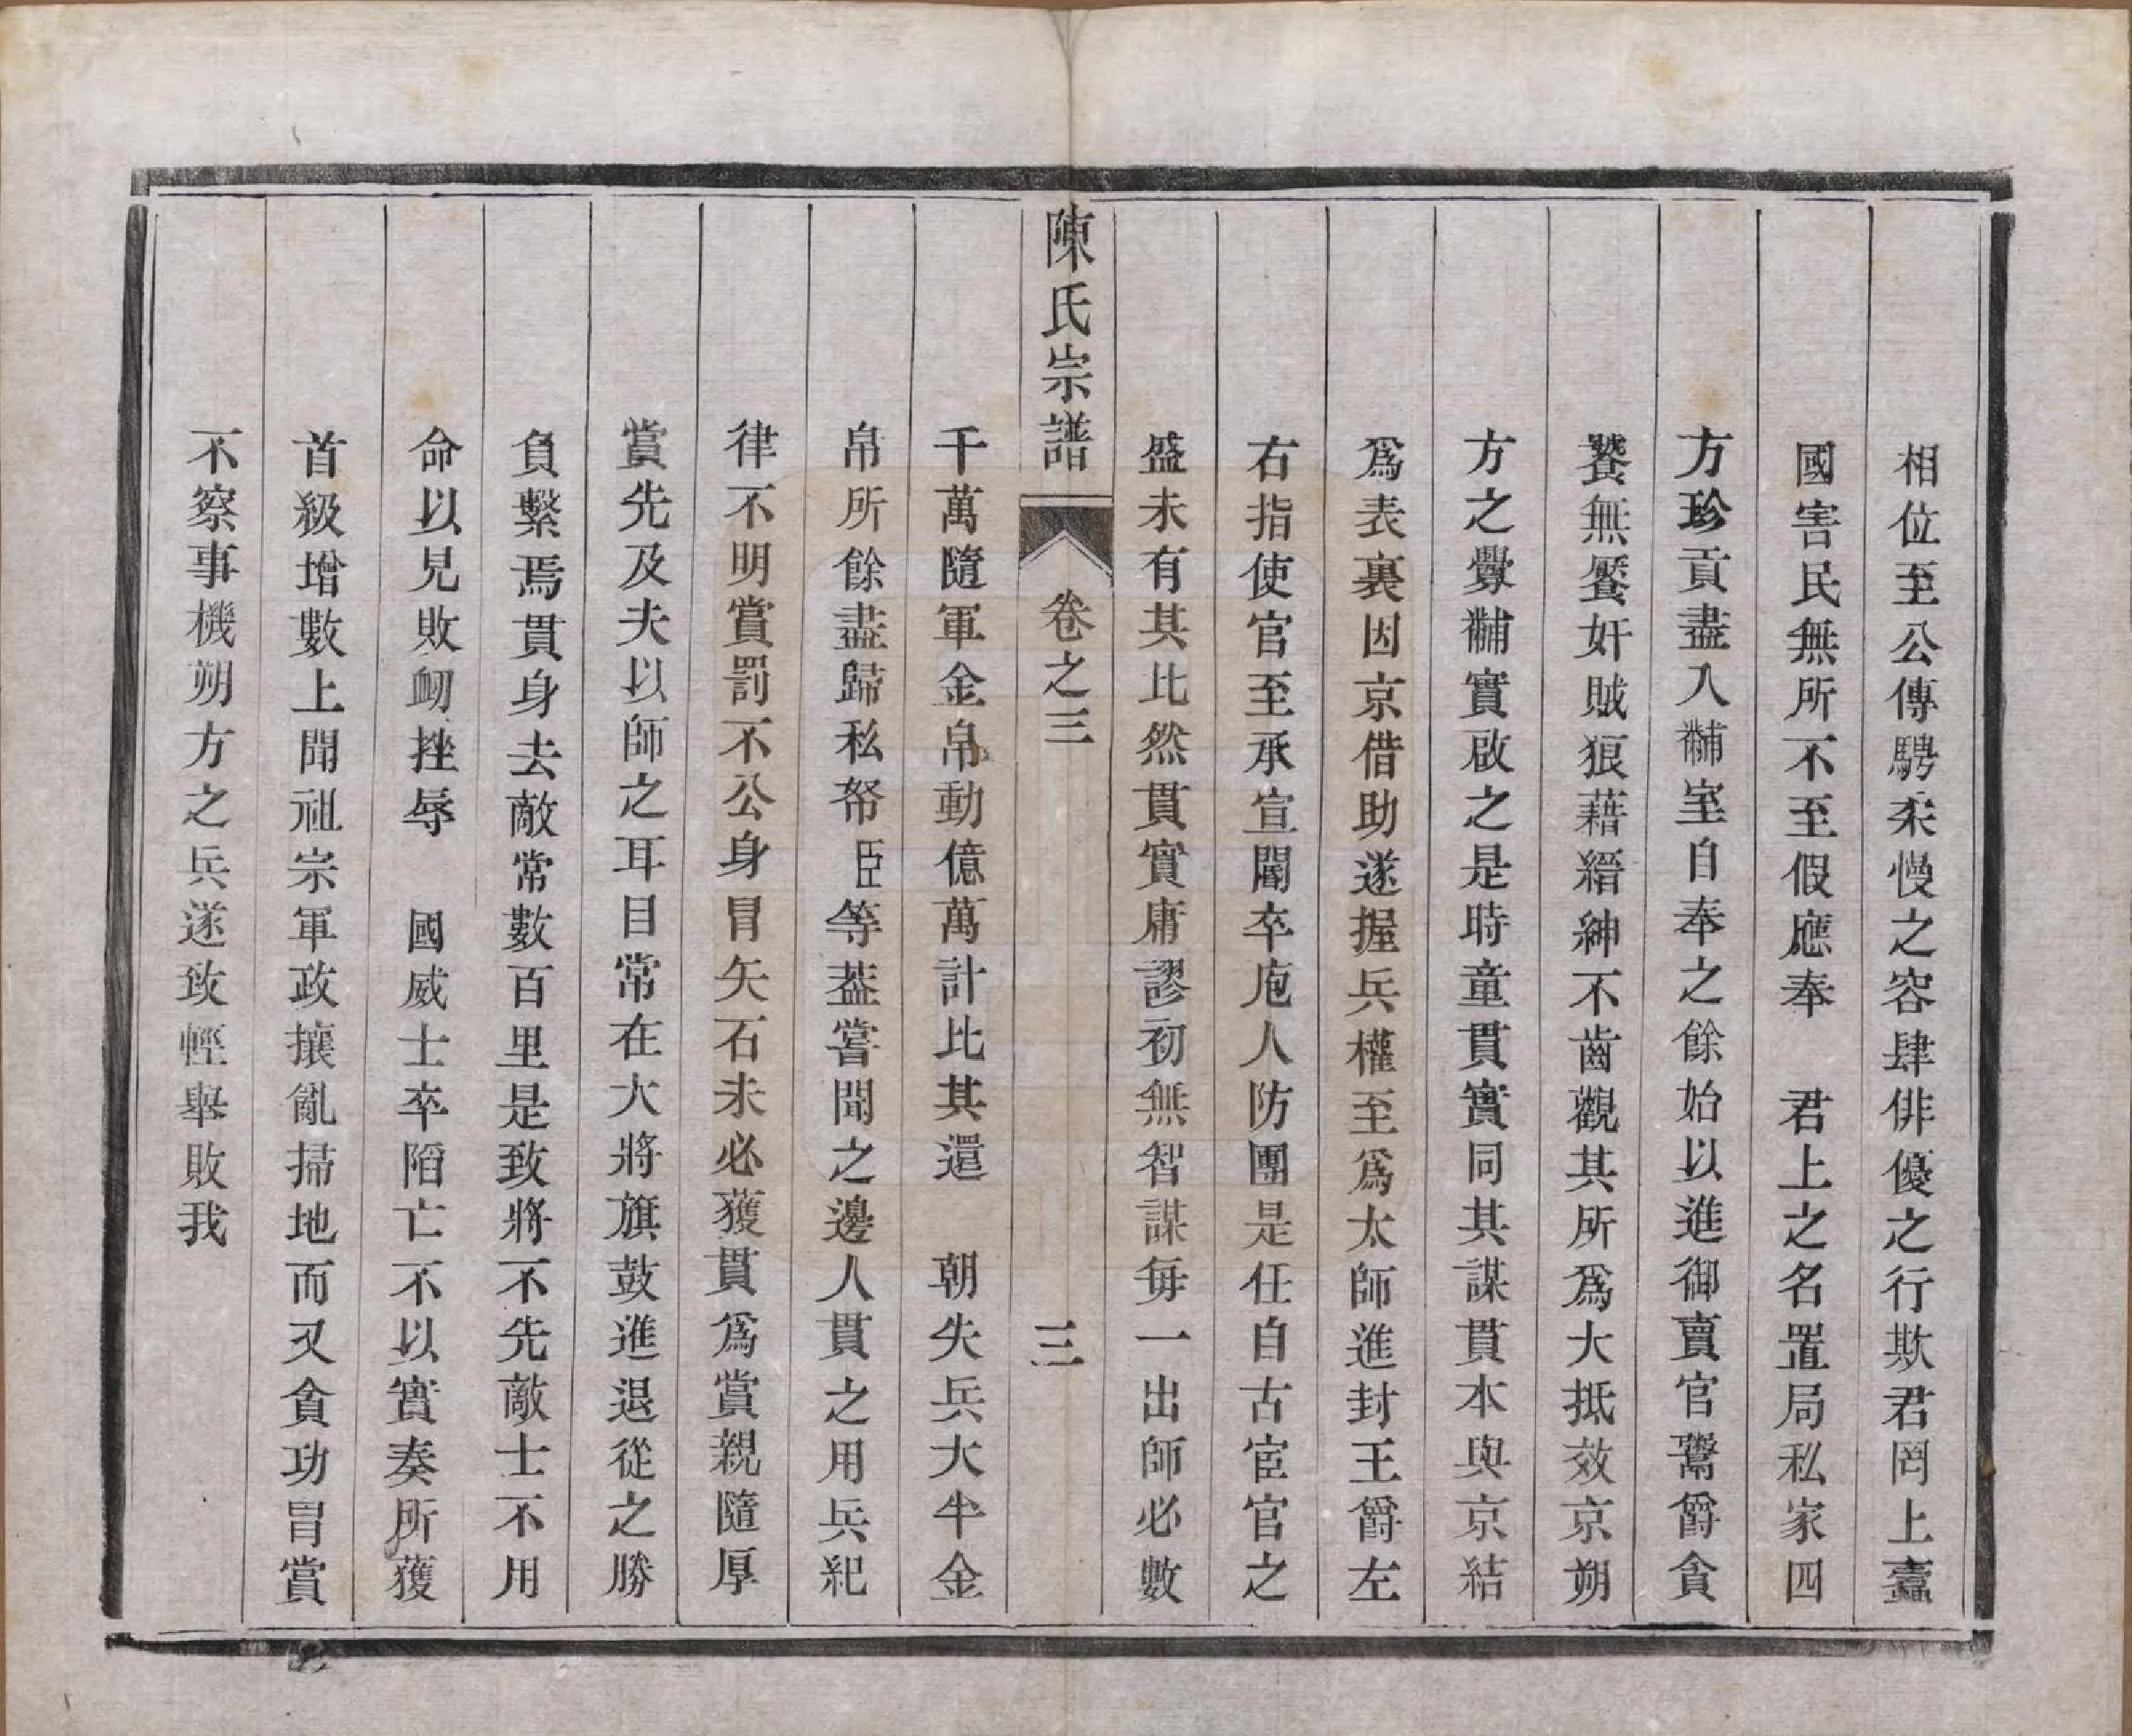 相位至公傳騁柔慢之容肆俳優之行欺君罔上蠹
國害民無所不至假應奉　君上之名置局私家四
方珍貢盡入黼室自奉之餘始以進御賣官鬻爵貪
饕無饜奸賊狼藉縉紳不齒觀其所爲大抵效京朔
方之釁黼實啟之是時童貫實同其謀貫本與京結
爲表裏因京借助遂握兵權至爲太師進封王爵左
右指使官至承宣閽卒庖人防團是任自古宦官之
盛未有其比然貫實庸謬初無智謀每一出師必數
陳氏宗譜　卷之三　三
千萬隨軍金帛動億萬計比其還　朝失兵大半金
帛所餘盡歸私帑臣等葢嘗聞之邊人貫之用兵紀
律不明賞罰不公身冒矢石未必獲貫爲賞親隨厚
賞先及夫以師之耳目常在大將旗鼓進退從之勝
負繫焉貫身去敵常數百里是致將不先敵士不用
命以見敗衂挫辱　國威士卒陷亡不以實奏所獲
首級增數上聞祖宗軍政攘亂掃地而又貪功冒賞
不察事機朔方之兵遂致輕舉敗我